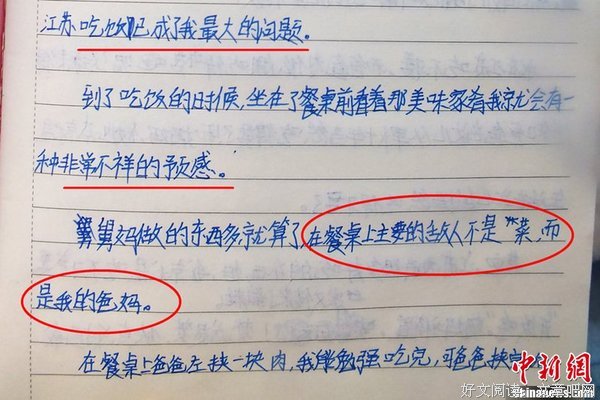 江苏吃饭已成了我最大的问题。
到了吃饭的时候,坐在了餐桌前看着那美味家肴我就会有一
种非常不祥的预感。
舅舅妈做的东西多就算了,在餐桌上主要的敌人不是“菜,而
是我的爸妈。
在餐桌上爸爸左挟一块肉,我坐勉强吃完,可爸爸挟完
中新网
Chinanews.com
好文阅读